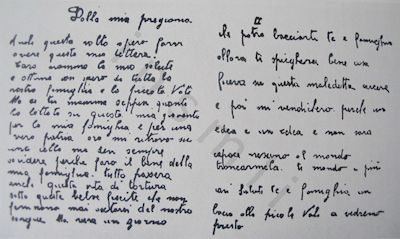 Dalla mia pregiono.
Anche questa volta spero farvi
avere questa mia lettera!
Caro mamma la mia salute
e ottima con pero di tutta la
vostra famiglia e la piccola Vati
Ma se tu mamma sapessi quanto
ho lotato su questa mia gioventu
per la mia famiglia e per una
vera patria. ora mi ritrovo su
una cella ma sono sempre
sicidere perche faro il bene della
mia famiglia. tutto passera
anche questa vita di tortura
sotto queste belve fasciste che non
finirano mai saziarsi del nostro
sangue. Ma vera un giorno
II
che potro bracciarti te e famiglia
allora ti spieghero bene una
guerra su questa maledetta ancora
e poi mi vendichero. perche un
idea e un idea e non sara
capace nesuno al mondo
troncarmela. ti mando i piu
cari saluti te e famiglia un
bacio alla picola Vati a vedremo
presto